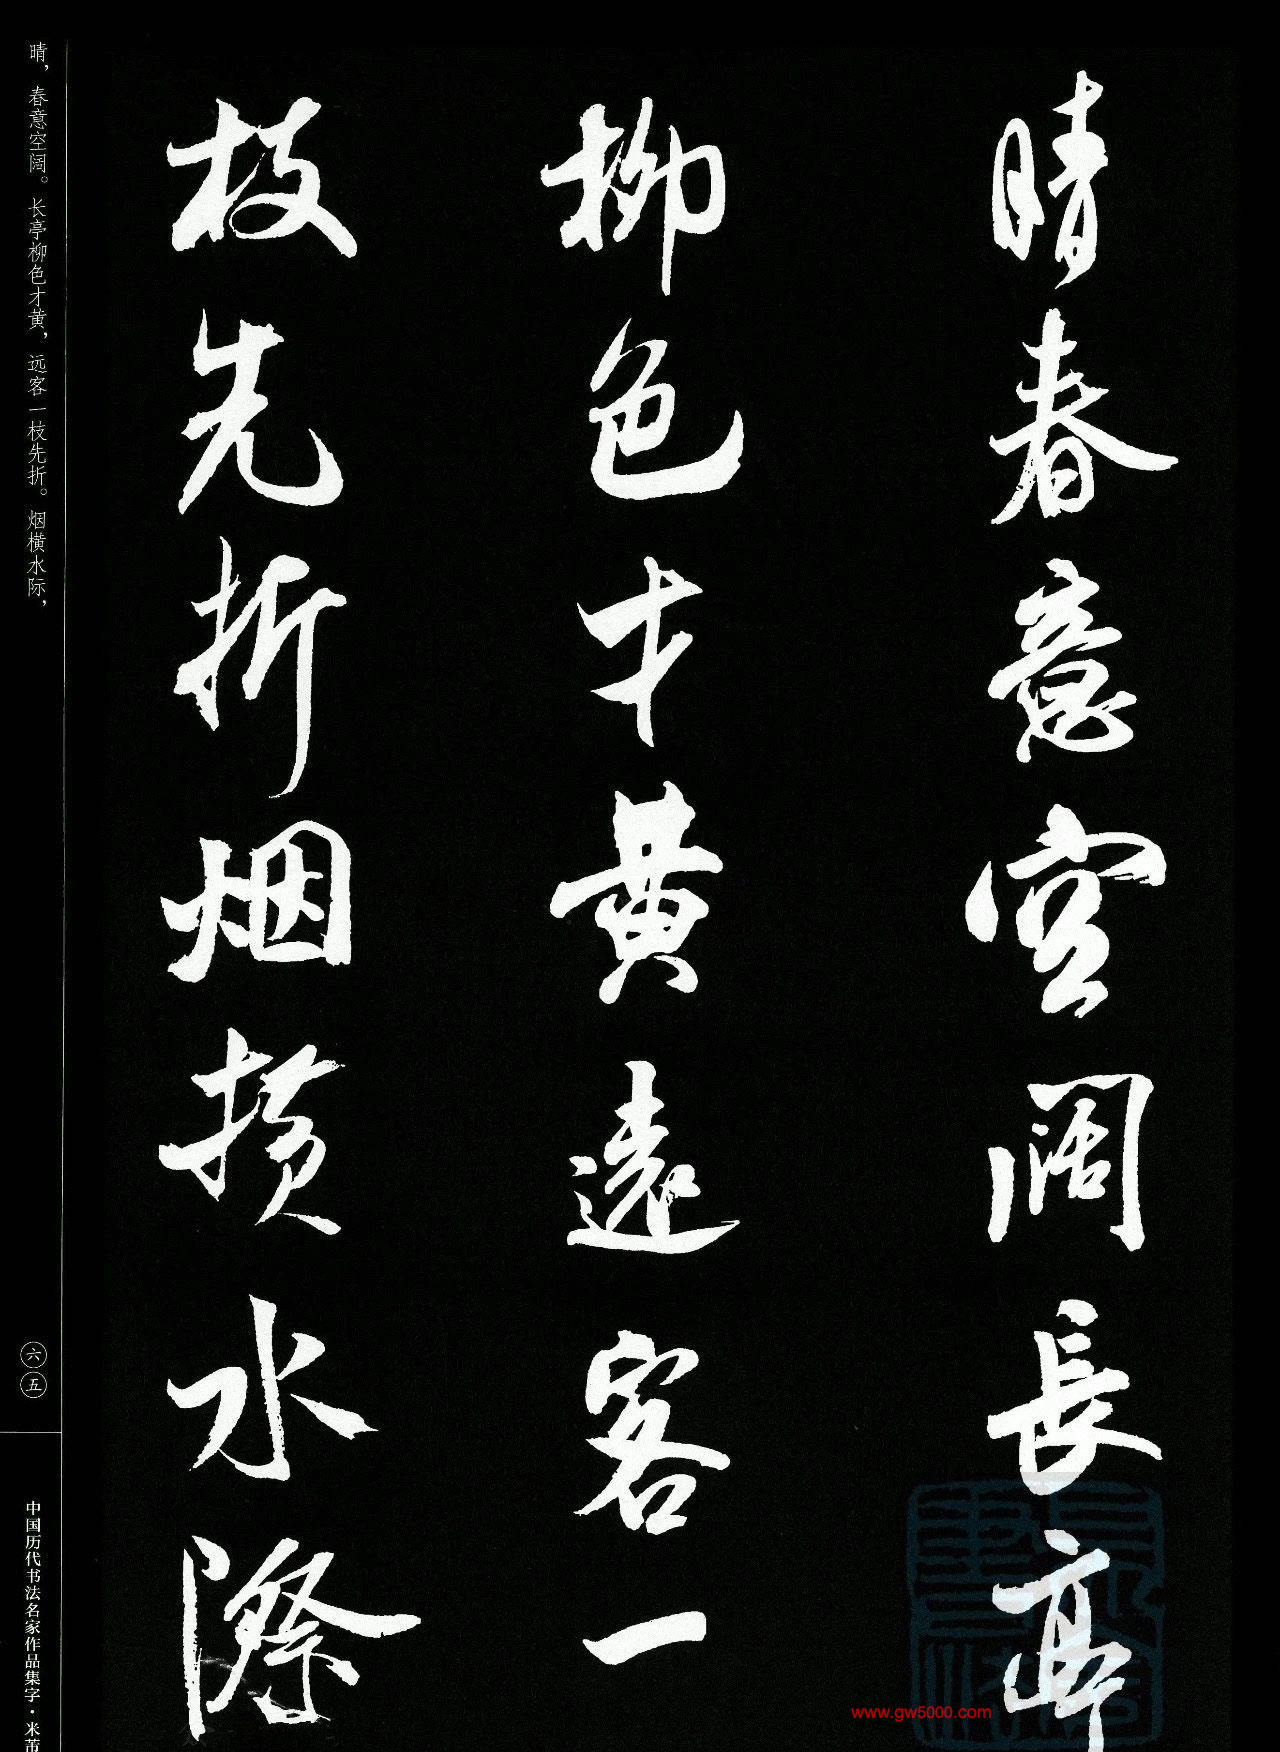 晴春意空阔長亭
柳色才黄遠客一
枝先折烟横水際
晴，春意空阔。长亭柳色才黄，远客一枝先折。烟横水际，
六五
中国历代书法名家作品集字·米芾
www.gw5000.com